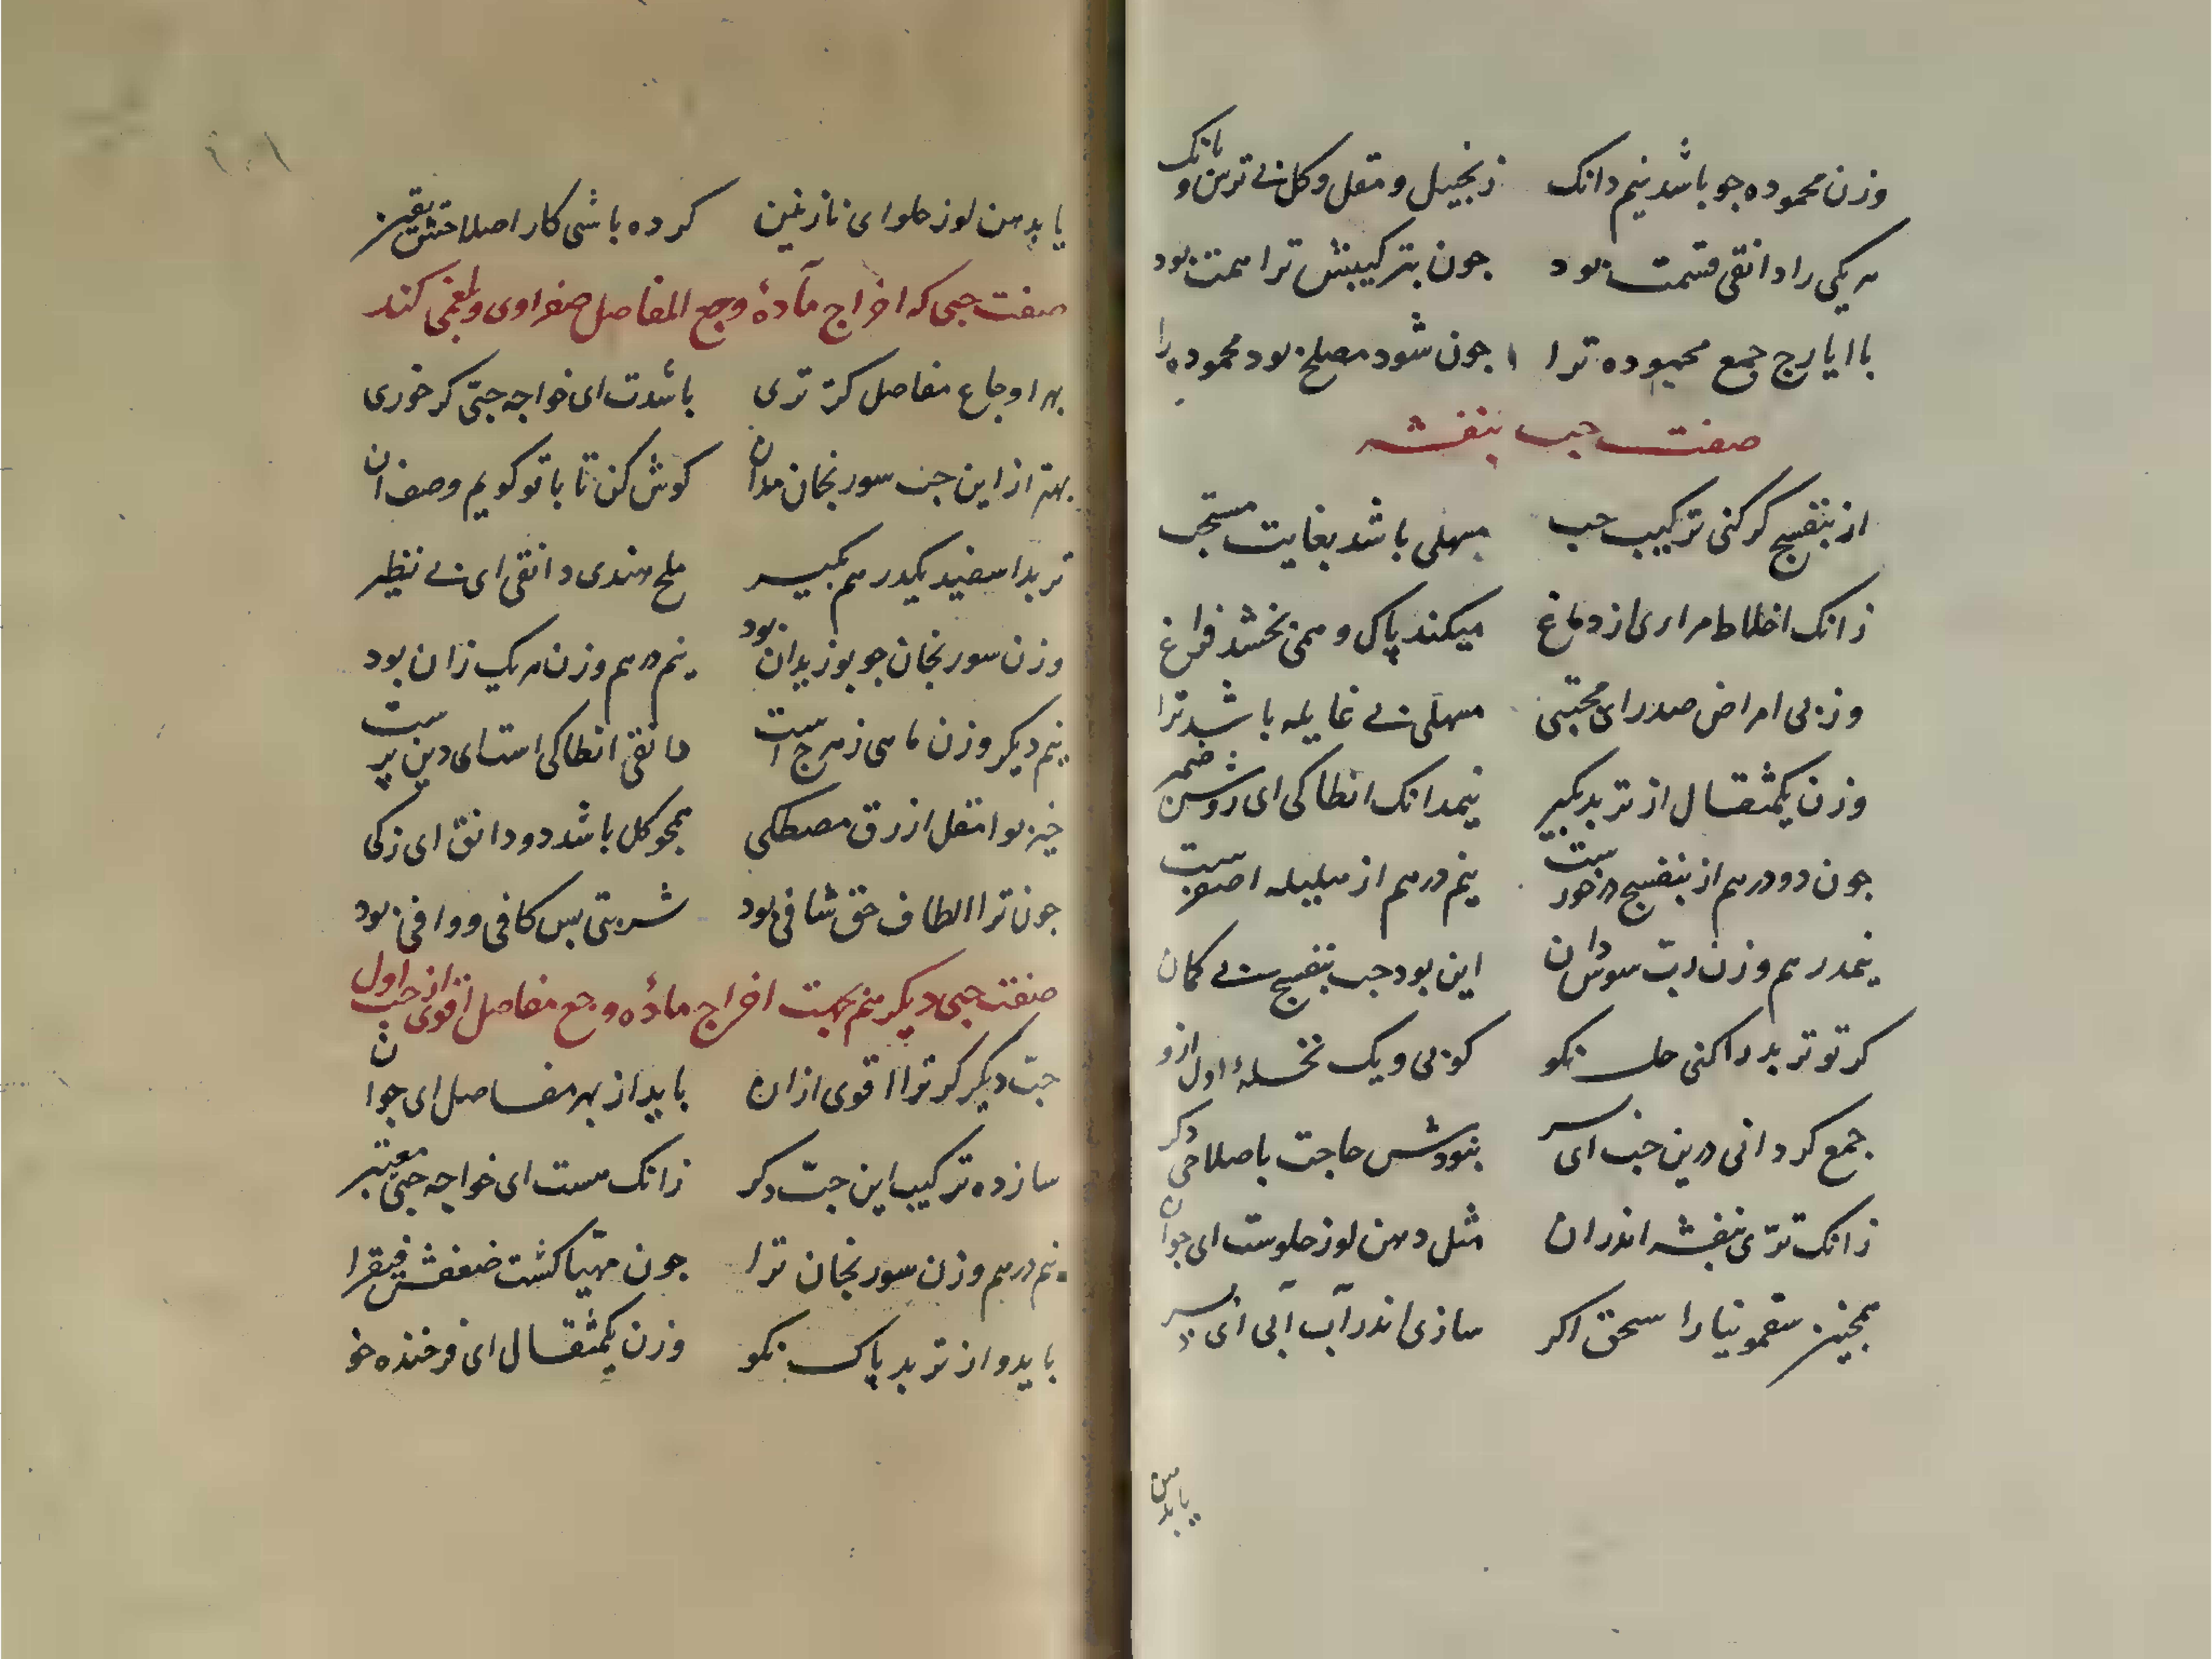 وزن محموده جو باشد نیم دانک زنجبیل و مقل و کل بی ترس و بانک
هر یکی را دانقی قسمت بود جون بترکیبش ترا همت بود
با ایارج جمع محموده ترا جون شود مصلح بود محموده را
صفت حب بنفشه
از بنفسج کر کنی ترکیب حب مسهلی باشد بغایت مستحب
زانک اخلاط مراری از دماغ میکند پاک و همی بخشد فراغ
وز پی امراض صدر ای مجتبی مسهلی بی غایله باشد ترا
وزن یکمثقال از تربد بکیر نیمدانک انطاکی ای روشن ضمیر
جون دو درهم از بنفسج در خورست نیم درهم از هلیله اصفرست
نیمدرهم وزن رب سوس دان این بود حب بنفسج بی کمان
کر تو تربد را کنی حل نکو کوبی و یک نخسلهٔ اول ازو
جمع کردانی درین حب ای سر نبودش حاجت باصلاحی دکر
زانک تری بنفشه اندران مثل دهن لوز حلوست ای جوان
همجنین سقمونیا را سحق اکر سازی اندر آب آبی ای سر
یا بدهن
یا بدهن لوز حلو ای نازنین کرده باشی کار اصلاحش یقین
صفت حبی که اخراج مآدهٔ وجع المفاصل صفراوی و بلغمی کند
بهر اوجاع مفاصل کز تری باشدت ای خواجه حبی کر خوری
بهتر از این حب سورنجان مدان کوش کن تا با تو کویم وصف آن
تربد اسفید یکدرهم بکیر ملح هندی دانقی ای بی نظیر
وزن سورنجان جو بوزیدان بود نیم درهم وزن هر یک زان بود
نیم دیکر وزن ماهی زهرج است دانقی انطاکی است ای دین پرست
خیز بوا مقل ازرق مصطکی همجو کل باشد دو دانق ای زکی
جون ترا الطاف حق شافی بود شربتی بس کافی و وافی بود
صفت حبی دیکر هم بجهت اخراج مادهٔ وجع مفاصل اقوی از حب اول
حب دیکر کر ترا اقوی ازان باید از بهر مفاصل ای جوان
ساز ده ترکیب این حب دکر زانک هست ای خواجه حبی معتبر
نیم درهم وزن سورنجان ترا جون مهیا کشت ضعفش فیقرا
باید و از تربد پاک نکو وزن یکمثقال ای فرخنده خو